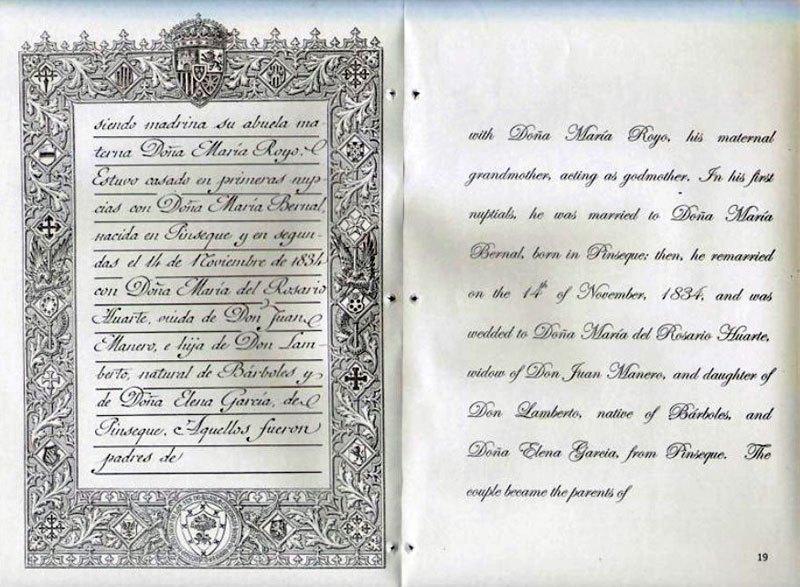 siendo madrina su abuela ma
terna Doña María Royo.
Estuvo casado en primeras nup-
cias con Doña María Bernal,
nacida en Pinseque y en segun-
das el 14 de Noviembre de 1834
con Doña María del Rosario
Huarte, viuda de Don Juan
Manero, e hija de Don Lam-
berto, natural de Bárboles y
de Doña Elena García, de
Pinseque. Aquellos fueron
padres de
with Doña María Royo, his maternal
grandmother, acting as godmother. In his first
nuptials, he was married to Doña María
Bernal, born in Pinseque; then, he remarried
on the 14th of November, 1834, and was
wedded to Doña María del Rosario Huarte,
widow of Don Juan Manero, and daughter of
Don Lamberto, native of Bárboles, and
Doña Elena Garcia, from Pinseque. The
couple became the parents of
19